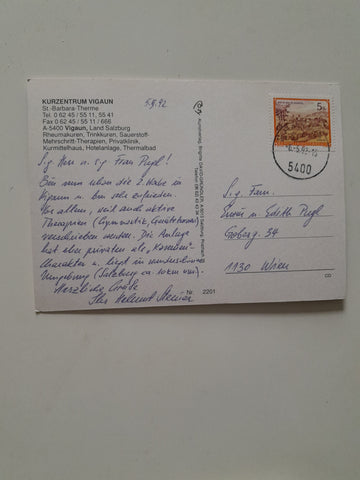 KURZENTRUM VIGAUN
St.-Barbara-Therme
Tel. 0 62 45 / 55 11, 55 41
Fax 0 62 45 / 55 11 / 666
A-5400 Vigaun, Land Salzburg
Rheumakuren, Trinkkuren, Sauerstoff-
Mehrschritt-Therapien, Privatklinik,
Kurmittelhaus, Hotelanlage, Thermalbad
S.g. Herr u. s.g. Frau
Bin nun schon die 2. Woche in
Vigaun u. bin sehr zufrieden.
Vor allem, weil auch aktive
Therapien (Gymnastik,
verschrieben werden. Die Anlage
hat eher privaten als „
Charakter u. liegt in wunderschöner
Umgebung (Salzburg ca. 10 km
Herzliche Grüße
Ihr Helmut
Nr. 2201
5400
S.g. Fam.
Erwin u. Edith
34
1130 Wien